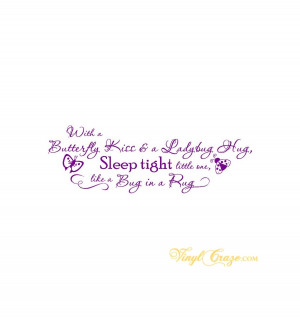 With a
Butterfly Kiss & a Ladybug Hug,
Sleep tight little one,
like a Bug in a Rug
Vinyl Craze.com